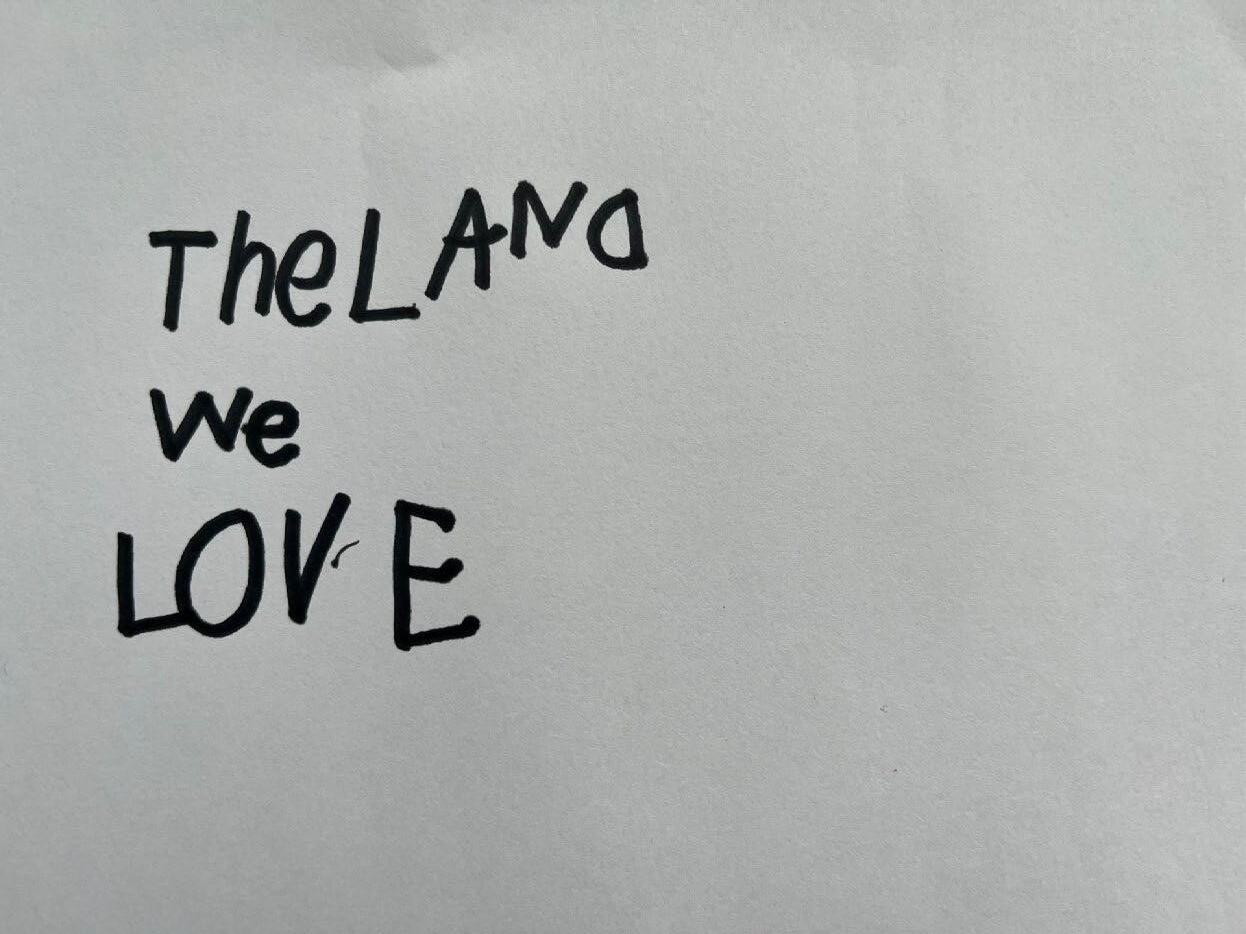 The LAND
we
LOVE